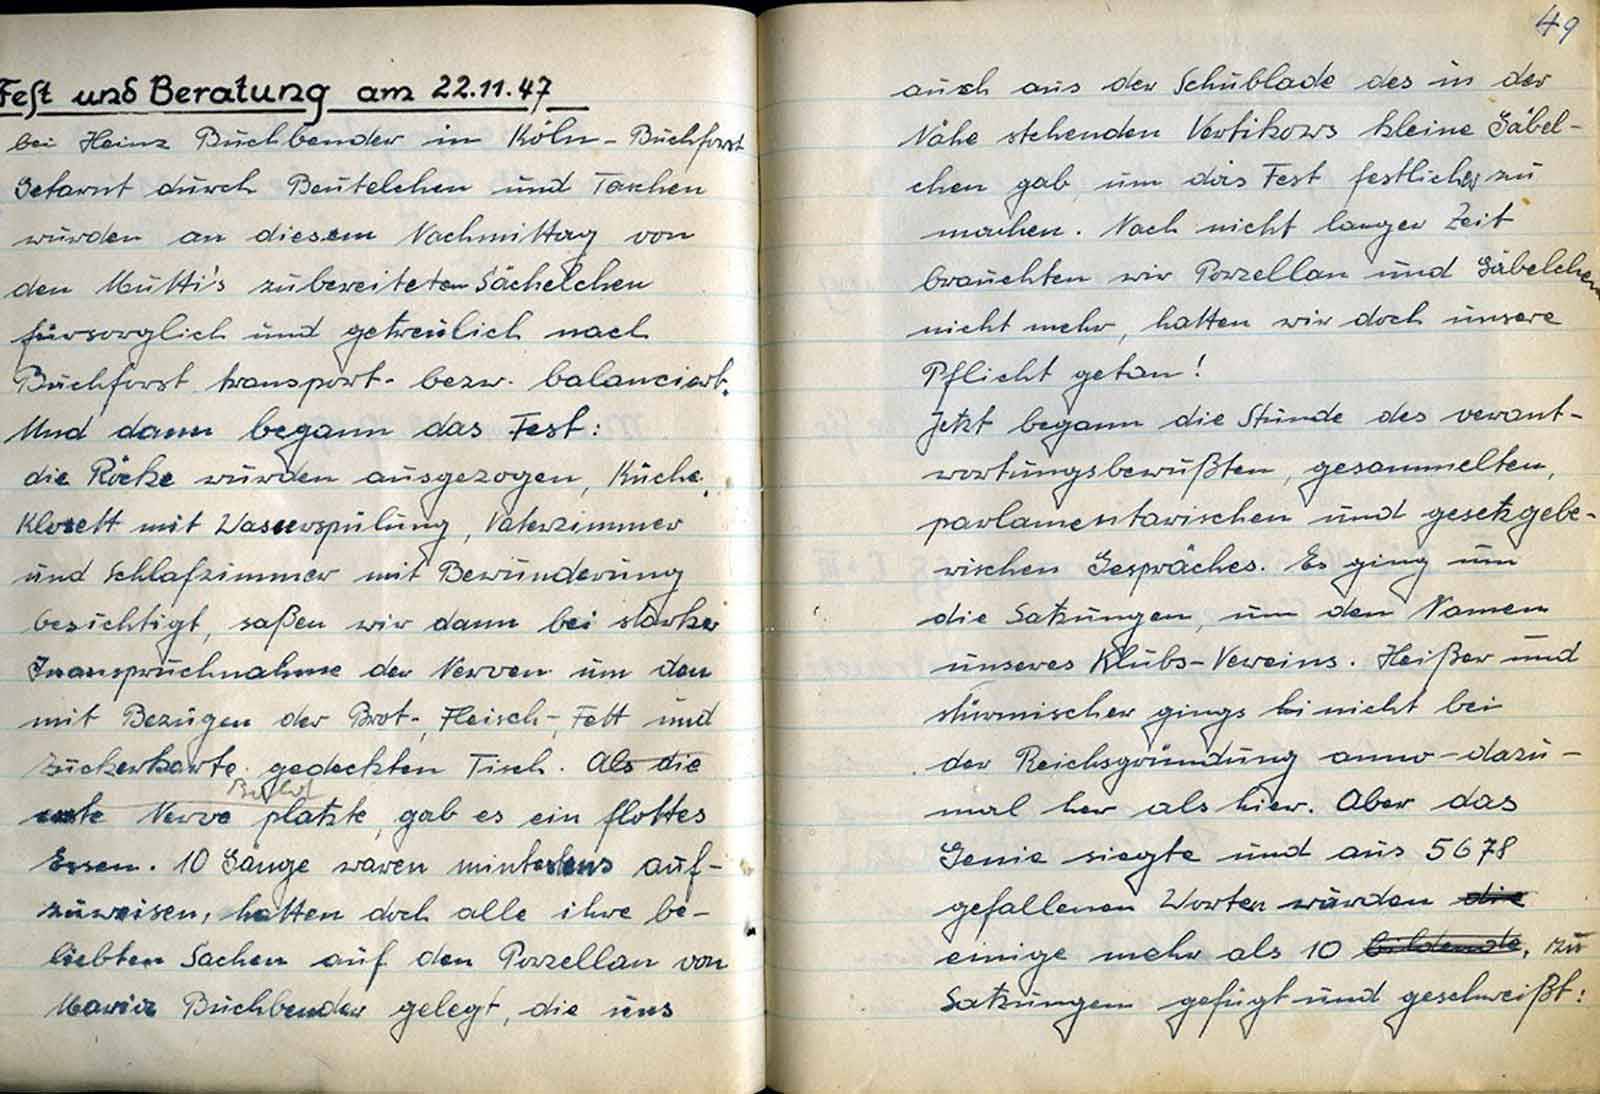 Fest und Beratung am 22.11.47
bei Heinz Buchbender in Köln-Buchforst
Getarnt durch Beutelchen und Taschen
wurden an diesem Nachmittag von
den Mutti's zubereiteten Sächelchen
fürsorglich und getreulich nach
Buchforst transport- bezw. balanciert.
Und dann begann das Fest:
die Röcke wurden ausgezogen, Küche,
Klosett mit Wasserspülung, Vaterzimmer
und Schlafzimmer mit Bewunderung
besichtigt, saßen wir dann bei starker
Inanspruchnahme der Nerven um den
mit Bezügen der Brot-, Fleisch-, Fett und
Zuckerkarte gedeckten Tisch. Als die
erste Nerve platzte, gab es ein flottes
Essen. 10 Gänge waren mindestens auf-
zuweisen, hatten doch alle ihre be-
liebten Sachen auf den Porzellan von
Maria Buchbender gelegt, die uns
49
auch aus der Schublade des in der
Nähe stehenden Vertikows kleine Gäbel-
chen gab, um das Fest festlicher zu
machen. Nach nicht langer Zeit
brauchten wir Porzellan und Gäbelchen
nicht mehr, hatten wir doch unsere
Pflicht getan!
Jetzt begann die Stunde des verant-
wortungsbewußten, gesammelten,
parlamentarischen und gesetzgebe-
rischen Gespräches. Es ging um
die Satzungen, um den Namen
unseres Klubs-Vereins. Heißer und
stürmischer gings nicht bei
der Reichsgründung anno-dazu-
mal her als hier. Aber das
Genie siegte und aus 5678
gefallenen Worten wurden die
einige mehr als 10 bildende, zu
Satzungen gefügt und geschweißt: